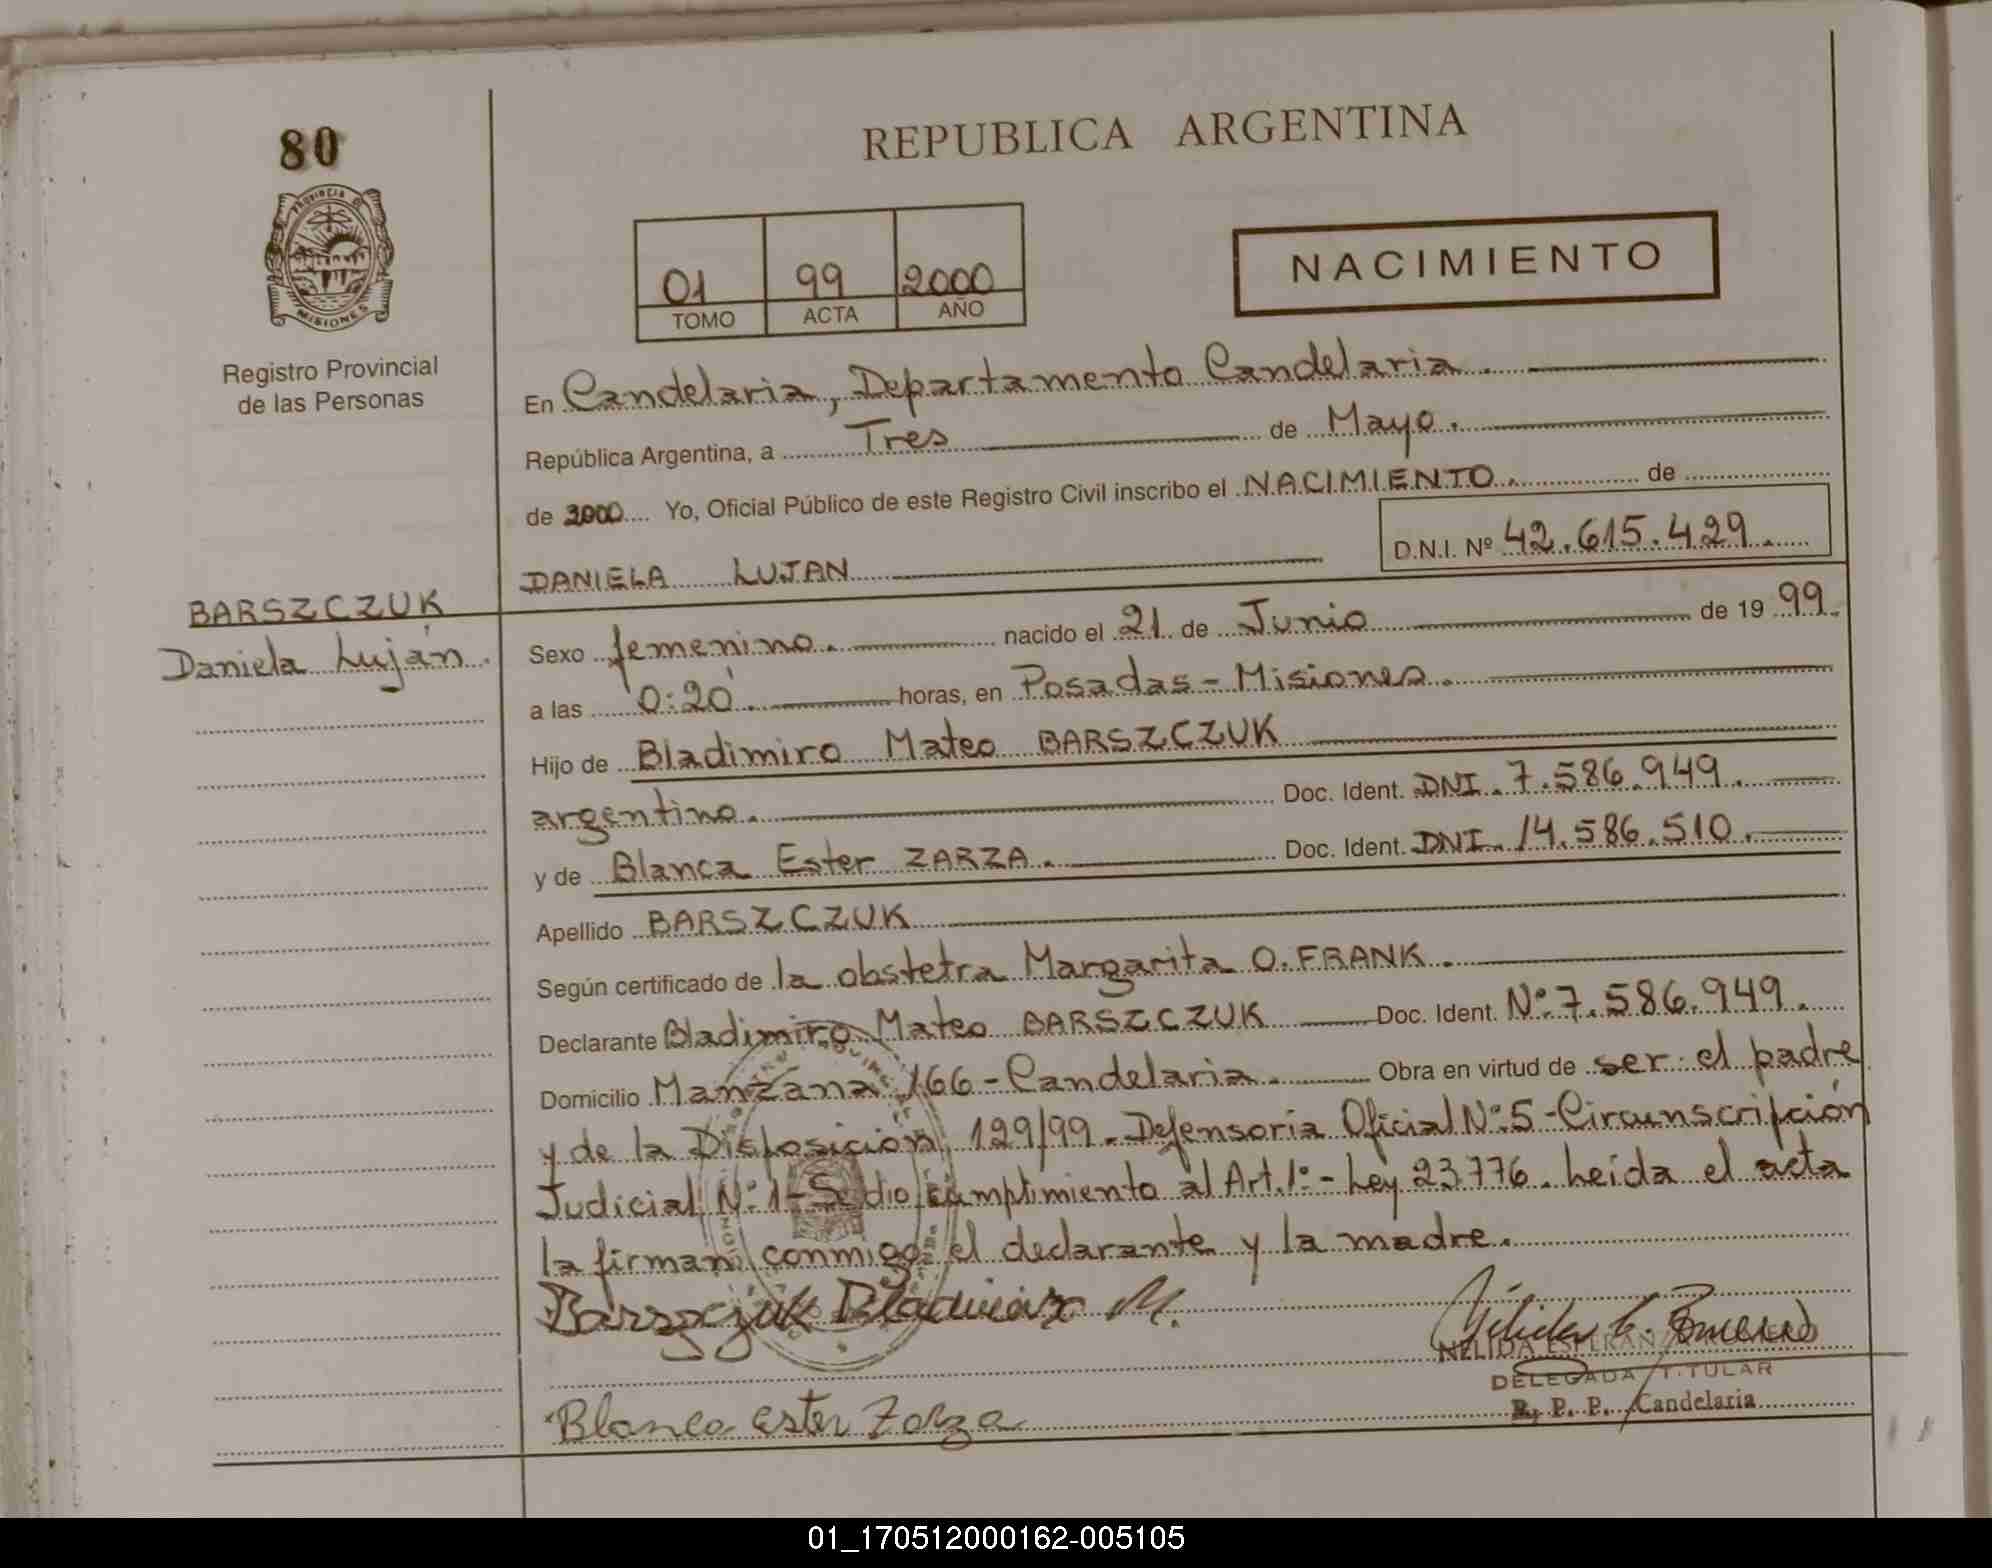 80
PROVINCIA DE
MISIONES
Registro Provincial
de las Personas
REPUBLICA ARGENTINA
01 99 2000
TOMO ACTA AÑO
NACIMIENTO
En Candelaria, Departamento Candelaria.
República Argentina, a Tres de Mayo.
de 2000 Yo, Oficial Público de este Registro Civil inscribo el NACIMIENTO. de
DANIELA LUJAN D.N.I. Nº 42.615.429.
BARSZCZUK
Daniela Luján.
Sexo femenino. nacido el 21 de Junio de 19 99.
a las 0:20. horas, en Posadas - Misiones.
Hijo de Bladimiro Mateo BARSZCZUK
argentino. Doc. Ident. DNI. 7.586.949.
y de Blanca Ester ZARZA. Doc. Ident. DNI. 14.586.510.
Apellido BARSZCZUK
Según certificado de la obstetra Margarita O. FRANK.
Declarante Bladimiro Mateo BARSZCZUK Doc. Ident. Nº 7.586.949.
Domicilio Manzana 166 - Candelaria. Obra en virtud de ser el padre
y de la Disposición 129/99. Defensoría Oficial Nº 5 - Circunscripción
Judicial Nº 1 - Se dio cumplimiento al Art. 1º - Ley 23776. Leída el acta
la firman conmigo el declarante y la madre.
Barszczuk Bladimiro M.
NELIDA ESPERAN
DELEGADA TITULAR
R. P. P. Candelaria
Blanca Ester Zarza
01_170512000162-005105